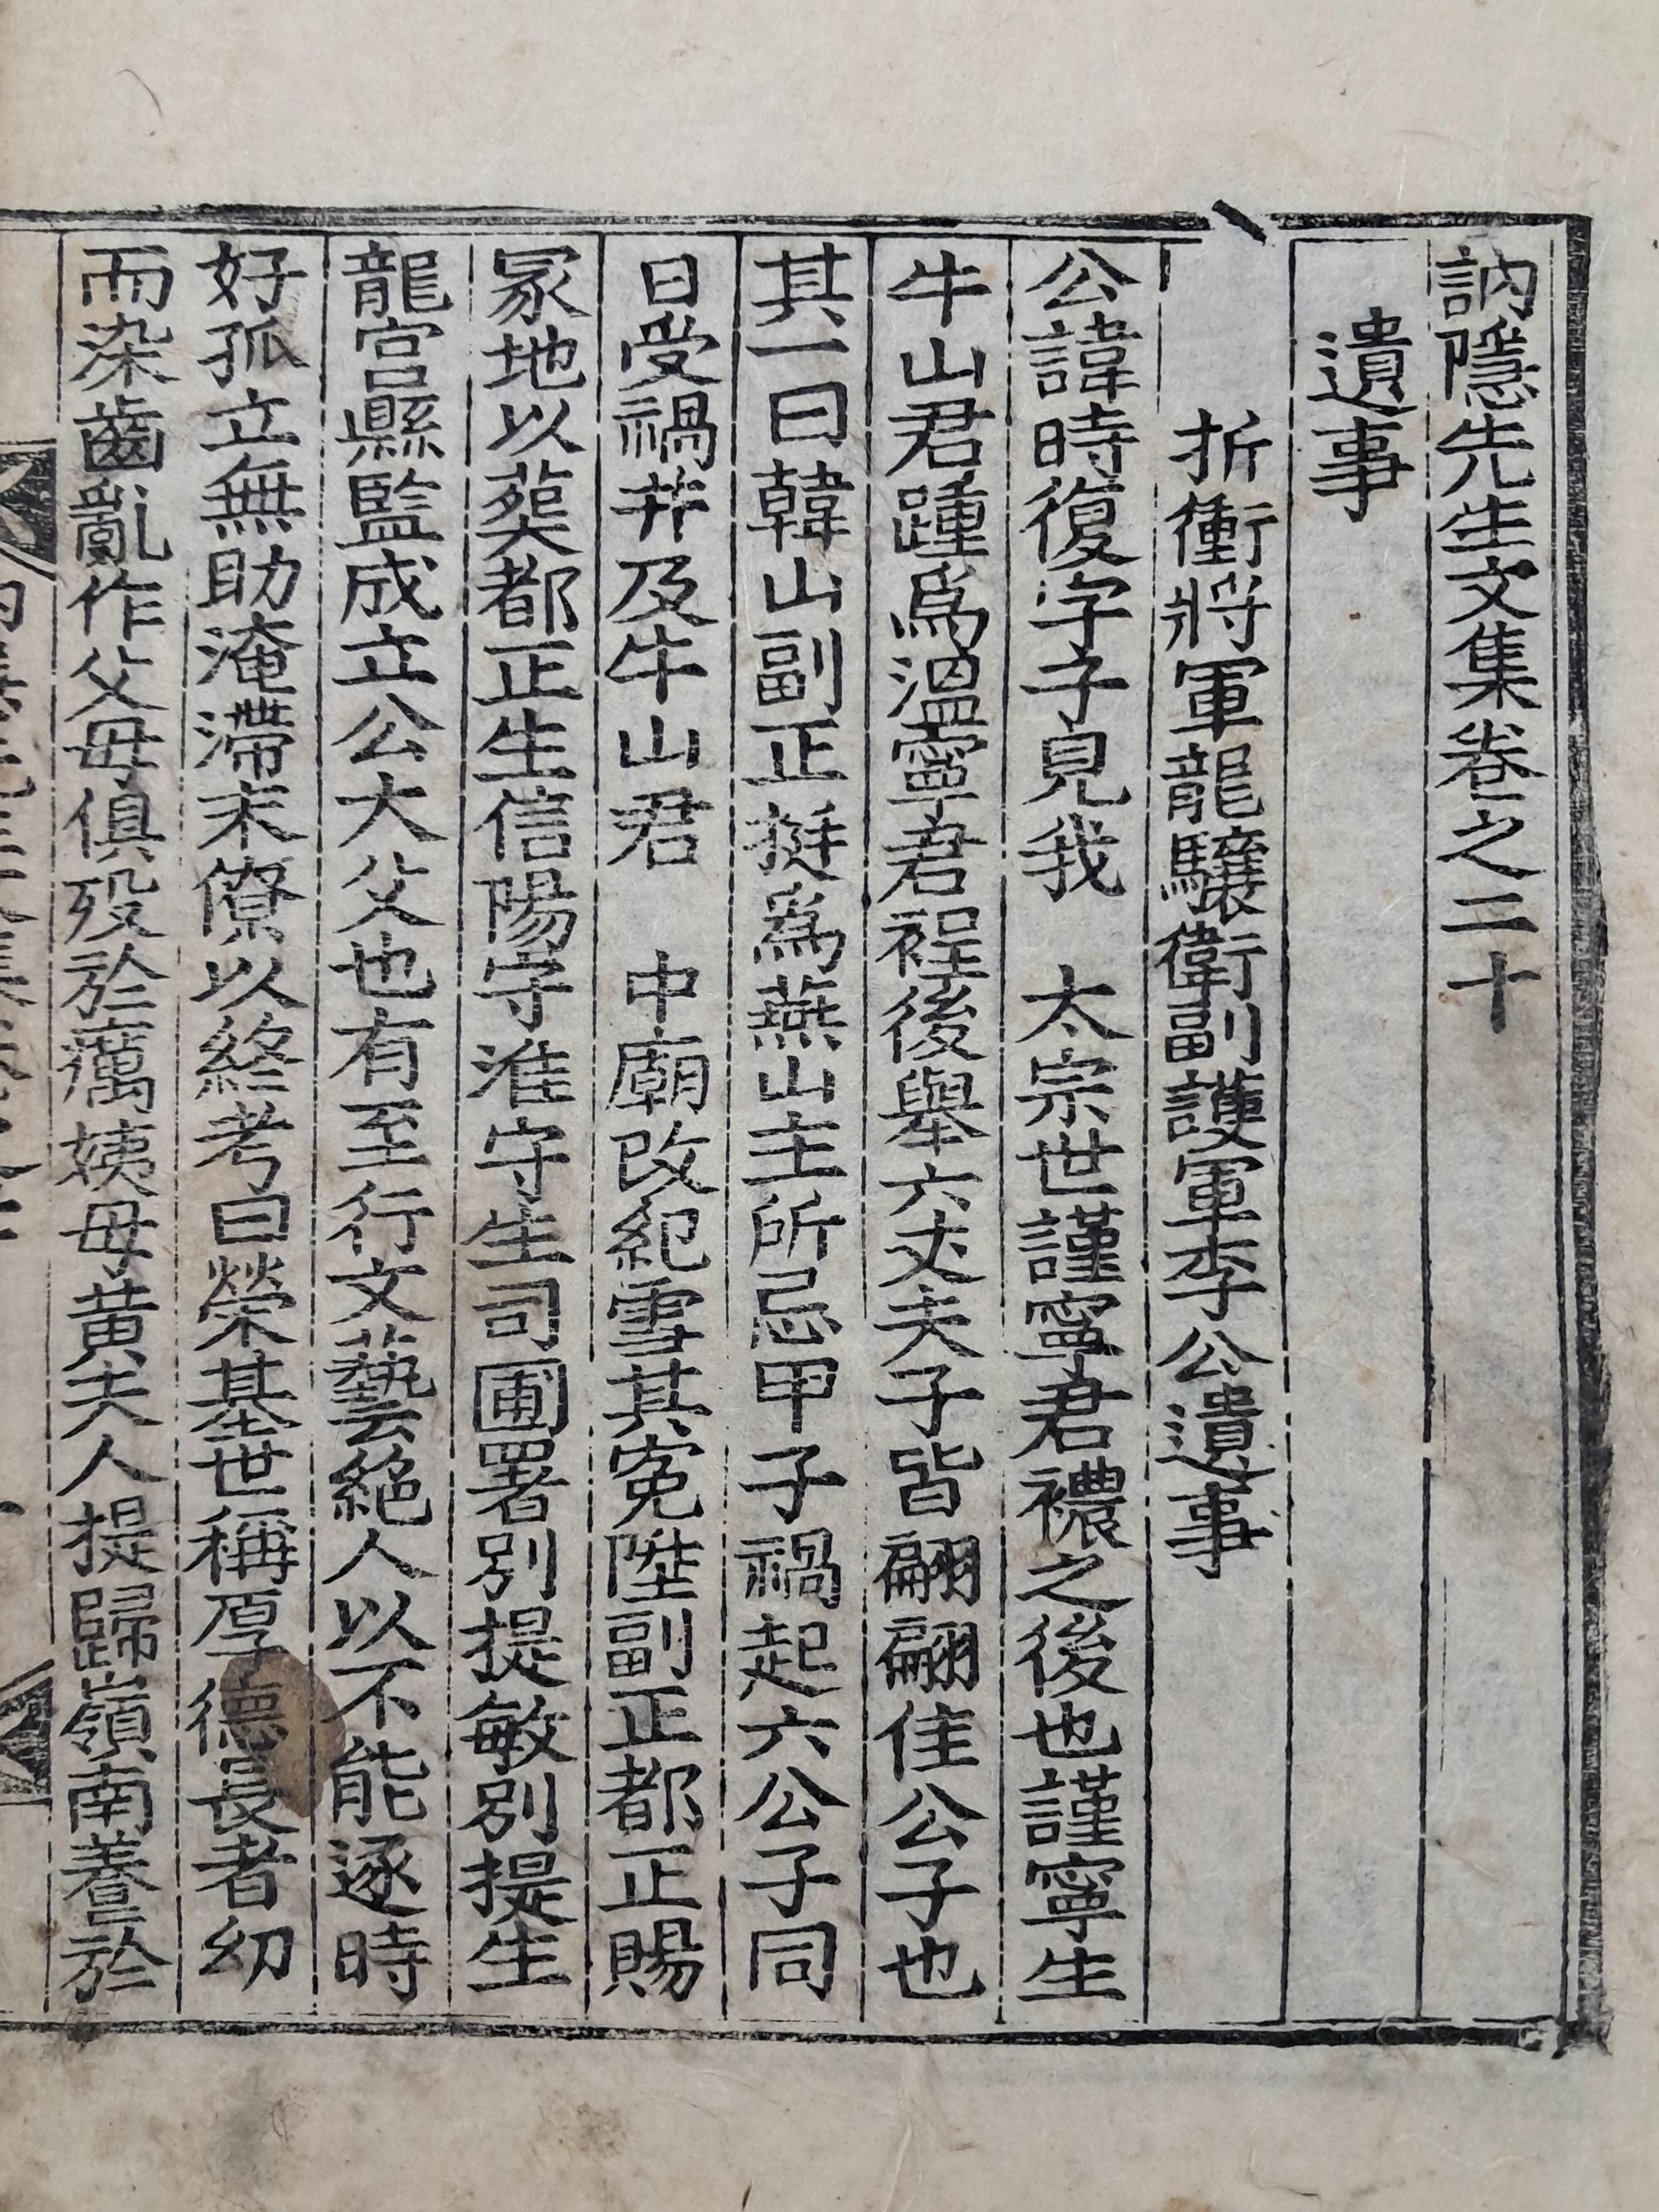 訥隱先生文集卷之二十
遺事
折衝將軍龍驤衛副護軍李公遺事
公諱時復字子見我　太宗世謹寧君襛之後也謹寧生
牛山君踵爲溫寧君䄇後擧六丈夫子皆翩翩佳公子也
其一曰韓山副正挺爲燕山主所忌甲子禍起六公子同
日受禍幷及牛山君　中廟改紀雪其寃陞副正都正賜
冢地以葬都正生信陽守淮守生司圃署別提敏別提生
龍宮縣監成立公大父也有至行文藝絕人以不能逐時
好孤立無助淹滯末僚以終考曰榮基世稱厚德長者幼
而染齒亂作父母俱歿於癘姨母黃夫人提歸嶺南養於